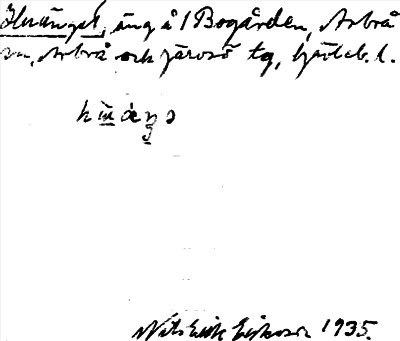 äng å 1 Bogården, Arbrå
sn, Arbrå och Järvsö tg, Gävleb. l.
Nils Erik Eriksson 1935.